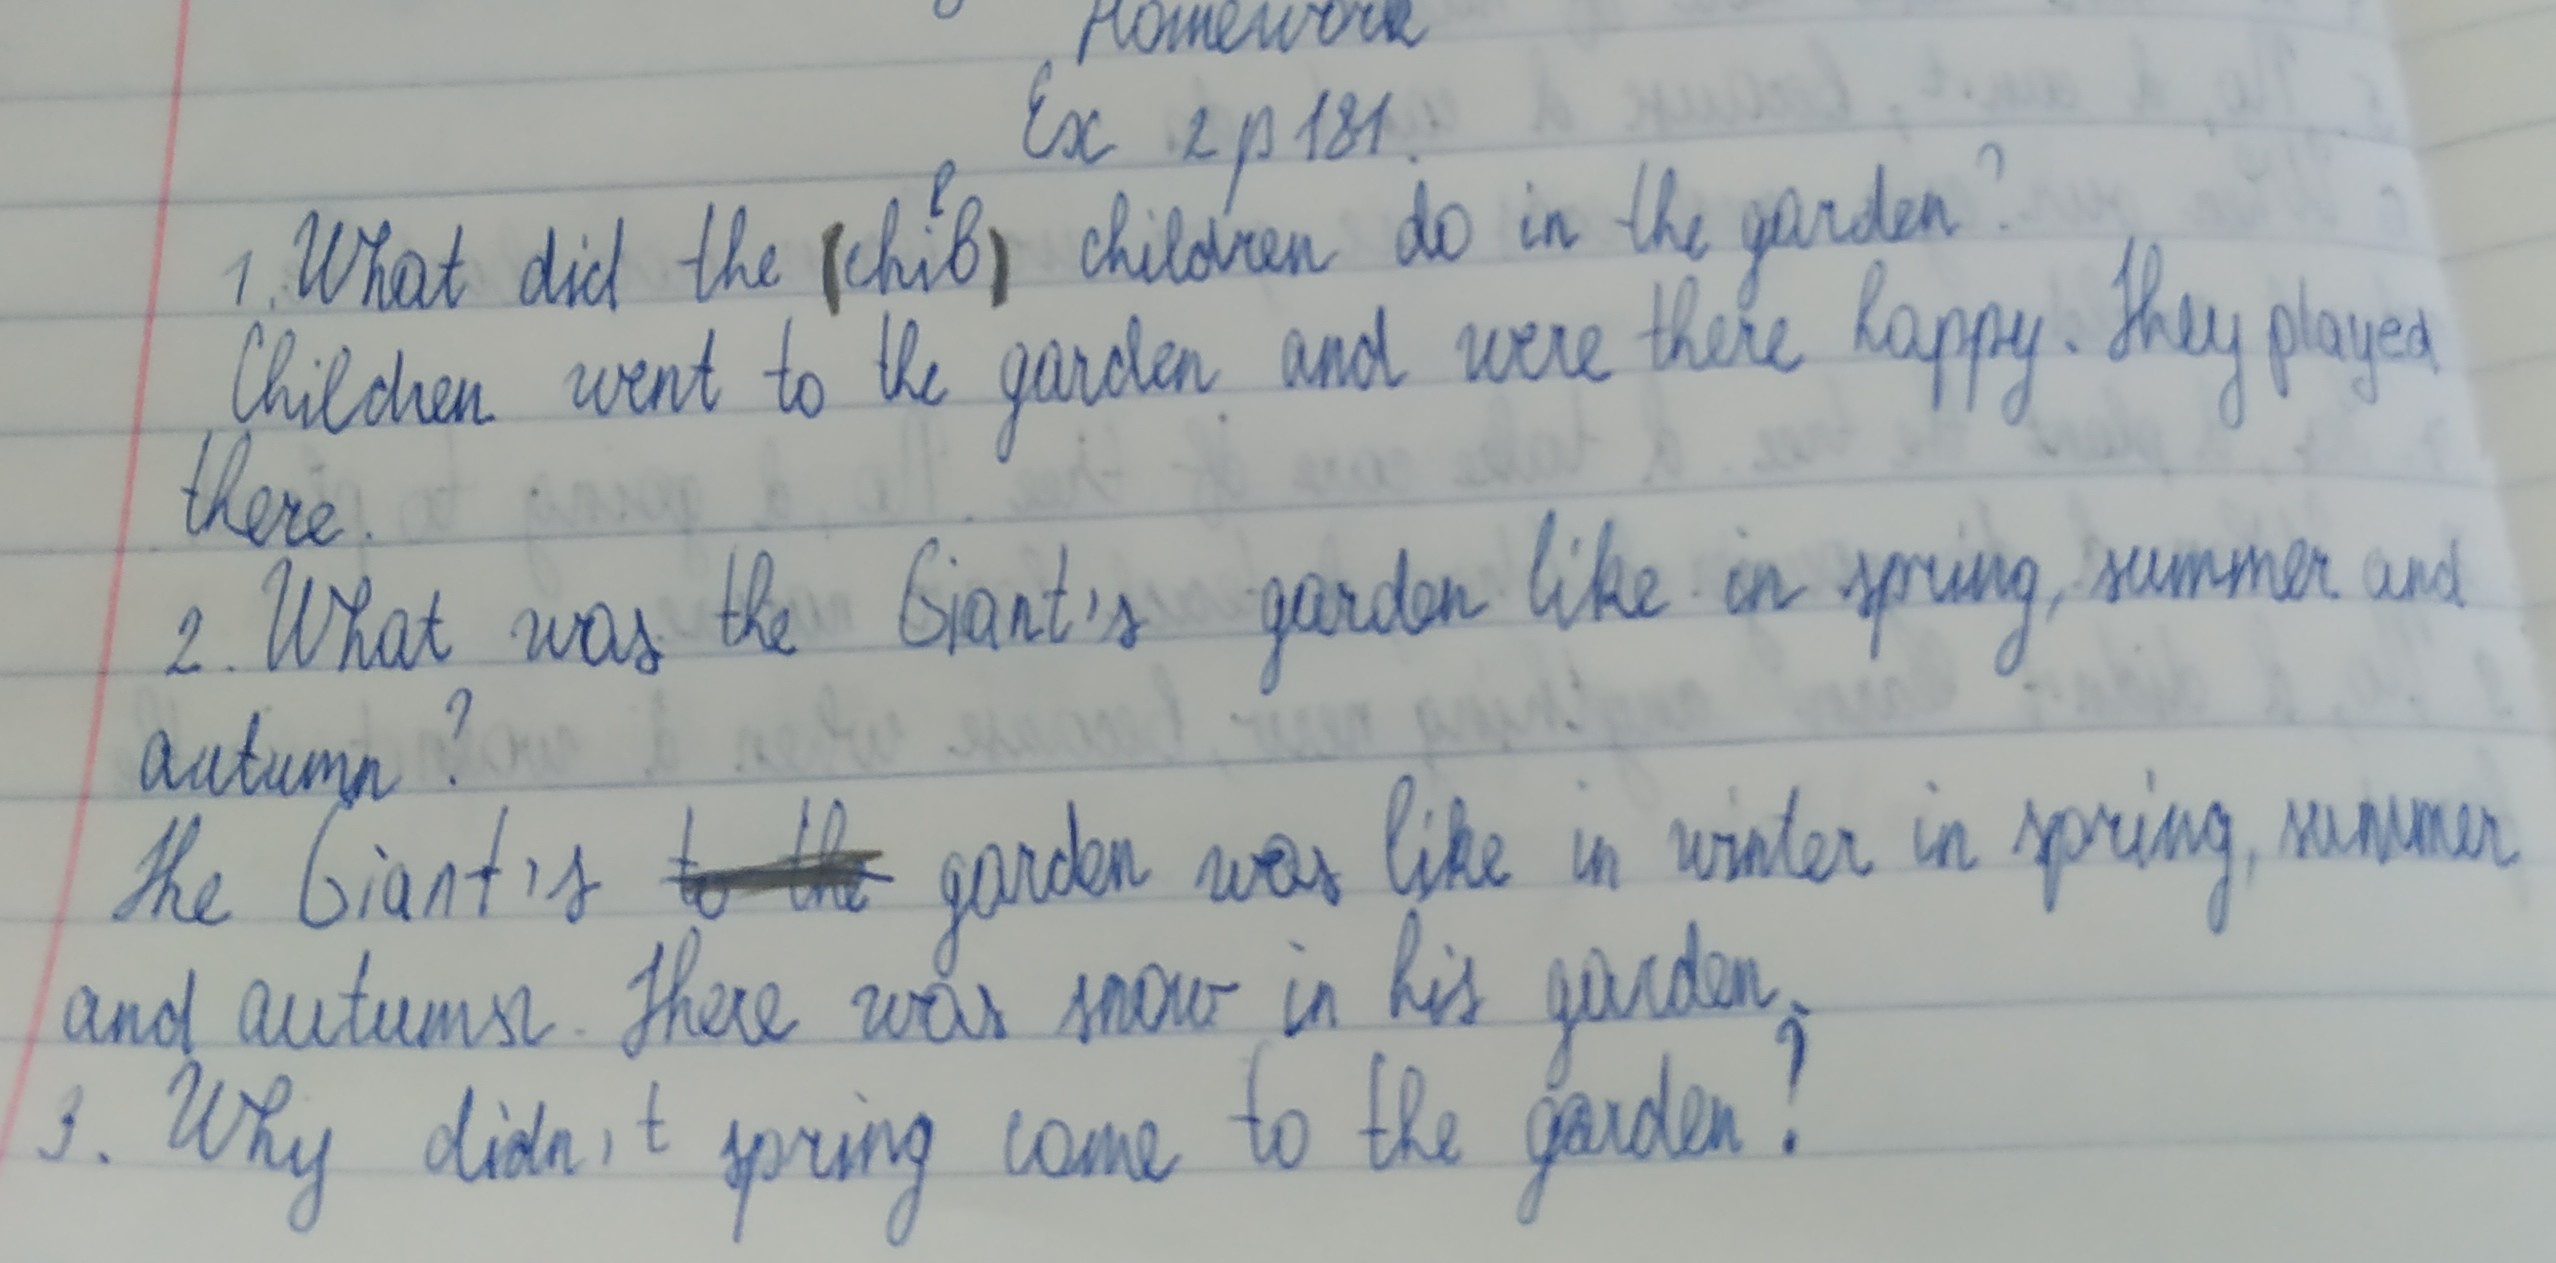 Homework
Ex 2 p 181.
1. What did the (chib) children do in the garden?
Children went to the garden and were there happy. They played
there.
2. What was the Giant's garden like in spring, summer and
autumn?
The Giant's to the garden was like in winter in spring, summer
and autumn. There was snow in his garden.
3. Why didn't spring come to the garden?